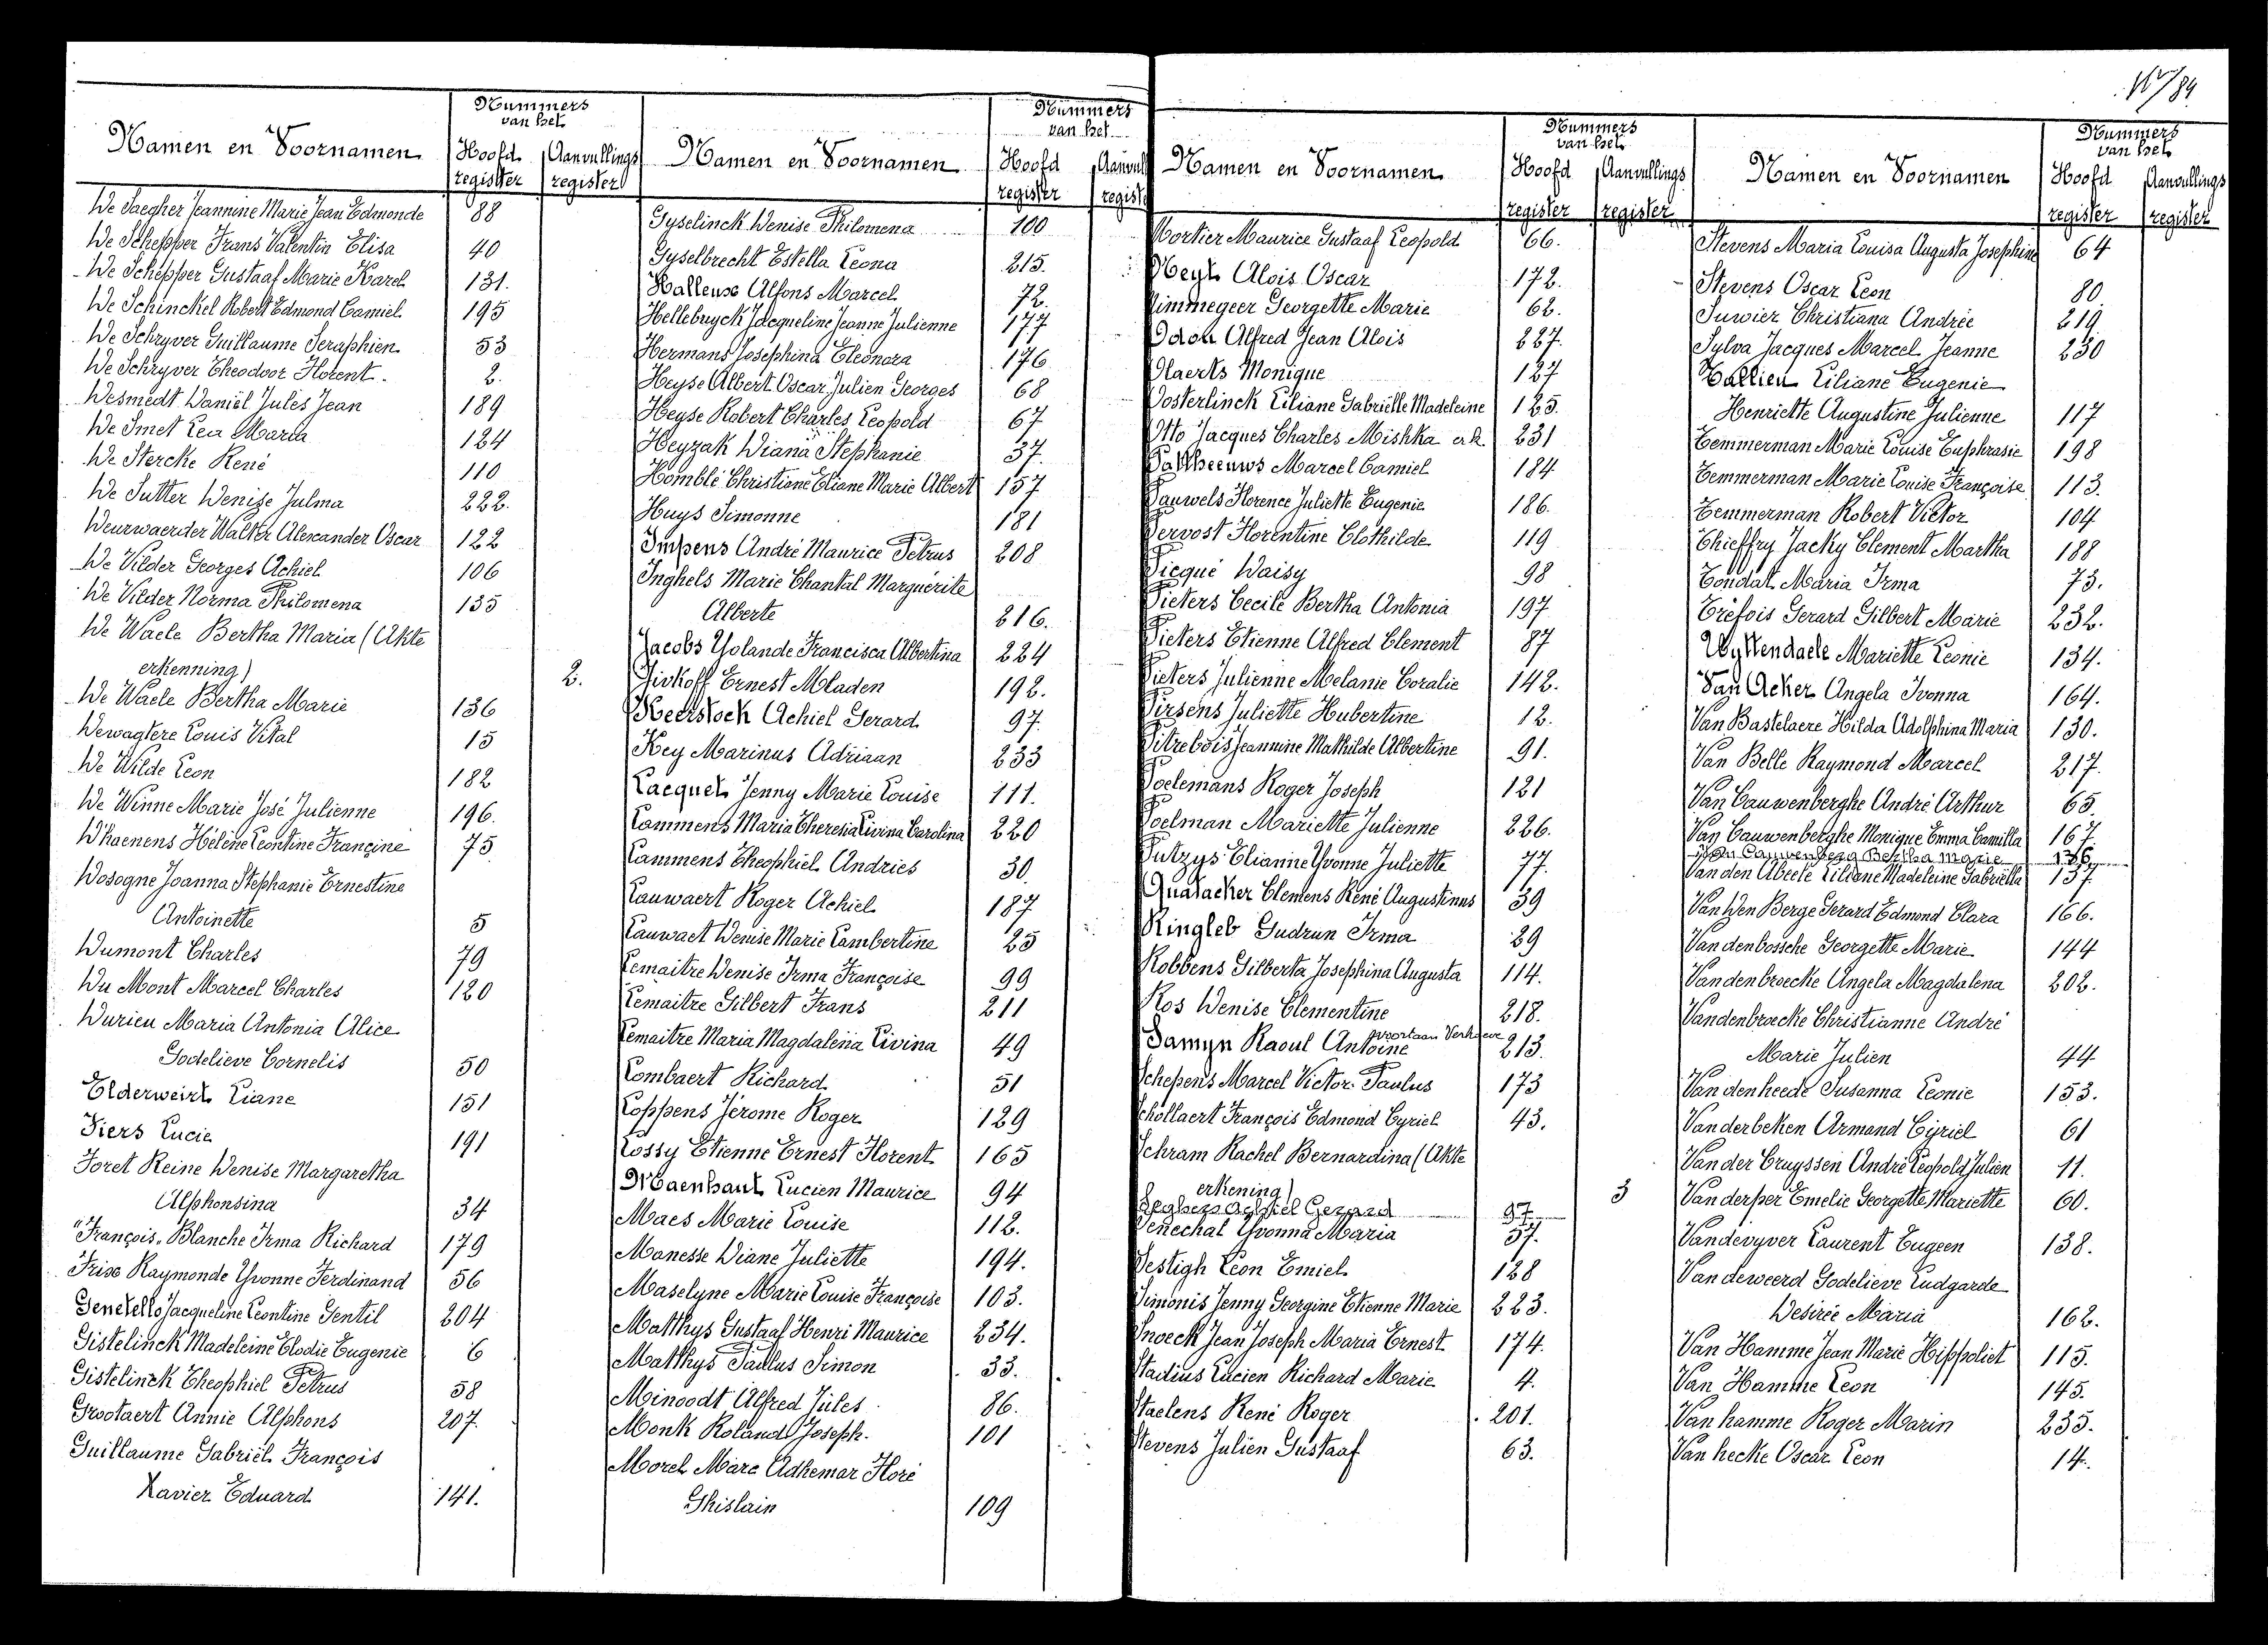 Namen en Voornamen
Nummers
van het
Hoofd
register
Aanvullings
register
De Saegher Jeannine Marie Jean Edmonde 88
De Schepper Frans Valentin Elisa 40
De Schepper Gustaaf Marie Karel 131.
De Schinckel Robert Edmond Camiel 195
De Schryver Guillaume Seraphien 53
De Schryver Theodoor Florent. 2.
Desmedt Daniël Jules Jean 189
De Smet Lea Maria 124
De Stercke René 110
De Sutter Denise Julma 222.
Deurwaerder Walter Alexander Oscar 122
De Vilder Georges Achiel 106
De Vilder Norma Philomena 135
De Waele Bertha Maria (Akte
erkenning) 2.
De Waele Bertha Marie 136
Dewagtere Louis Vital 15
De Wilde Leon 182
De Winne Marie José Julienne 196.
D'haenens Hélène Leontine Françine 75
Dosogne Joanna Stephanie Ernestine
Antoinette 5
Dumont Charles 79
Du Mont Marcel Charles 120
Durieu Maria Antonia Alice
Godelieve Cornelis 50
Elderweirt Liane 151
Fiers Lucie 191
Foret Reine Denise Margaretha
Alphonsina 34
"François" Blanche Irma Richard 179
Frise Raymonde Yvonne Ferdinand 56
Genetello Jacqueline Leontine Gentil 204
Gistelinck Madeleine Elodie Eugenie 6
Gistelinck Theophiel Petrus 58
Grootaert Annie Alphons 207.
Guillaume Gabriël François
Xavier Eduard 141.
Namen en Voornamen
Nummers
van het
Hoofd
register
Aanvull
regist
Gyselinck Denise Philomena 100
Gyselbrecht Estella Leona 215.
Halleuse Alfons Marcel 72.
Hellebuyck Jacqueline Jeanne Julienne 177
Hermans Josephina Eleonora 176
Heyse Albert Oscar Julien Georges 68
Heyse Robert Charles Leopold 67
Heyzak Diana Stephanie 37.
Homblé Christiane Eliane Marie Albert 157
Huys Simonne 181
Impens André Maurice Petrus 208
Inghels Marie Chantal Marguérite
Alberte 216.
Jacobs Yolande Francisca Albertina 224
Jivkoff Ernest Mladen 192.
Keerstock Achiel Gerard 97.
Key Marinus Adriaan 233
Lacquet Jenny Marie Louise 111.
Lammens Maria Theresia Livina Carolina 220
Lammens Theophiel Andries 30.
Lauwaert Roger Achiel 187
Lauwaet Denise Marie Lambertine 25
Lemaitre Denise Irma Françoise 99
Lemaitre Gilbert Frans 211
Lemaitre Maria Magdalena Livina 49
Lombaert Richard 51
Loppens Jérome Roger 129
Lossy Etienne Ernest Florent 165
Maenhaut Lucien Maurice 94
Maes Marie Louise 112.
Manesse Diane Juliette 194.
Maselyne Marie Louise Françoise 103.
Matthys Gustaaf Henri Maurice 234.
Matthys Paulus Simon 33.
Minoodt Alfred Jules 86.
Monk Roland Joseph. 101
Morel Marc Adhemar Floré
Ghislain 109
Namen en Voornamen
Nummers
van het
Hoofd
register
Aanvullings
register
Mortier Maurice Gustaaf Leopold 66.
Neyt Alois Oscar 172.
Nimmegeer Georgette Marie 62.
Odon Alfred Jean Alois 227.
Olaerts Monique 127
Oosterlinck Liliane Gabriëlle Madeleine 125.
Otto Jacques Charles Mishka erk. 231
Pattheeuws Marcel Camiel 184
Pauwels Florence Juliette Eugenie 186.
Pervost Florentine Clothilde 119
Picqué Daisy 98
Pieters Cecile Bertha Antonia 197
Pieters Etienne Alfred Clement 87
Pieters Julienne Melanie Coralie 142.
Pirsens Juliette Hubertine 12.
Pitrebois Jeannine Mathilde Albertine 91.
Poelemans Roger Joseph 121
Poelman Mariette Julienne 226.
Putzys Elianne Yvonne Juliette 77.
Quatacker Clemens René Augustinus 39
Ringleb Gudrun Irma 29
Robbens Gilberta Josephina Augusta 114.
Ros Denise Clementine 218.
voortaan Verhoeve
Samyn Raoul Antoine 213.
Schepens Marcel Victor Paulus 173
Schollaert François Edmond Cyriel 43.
Schram Rachel Bernardina (Akte
erkening) 3
Seghers Achiel Gerard 97
Senechal Yvonna Maria 57.
Sestigh Leon Emiel 128
Simonis Jenny Georgine Etienne Marie 223.
Snoeck Jean Joseph Maria Ernest 174.
Stadius Lucien Richard Marie 4.
Staelens René Roger 201.
Stevens Julien Gustaaf 63.
W/89
Namen en Voornamen
Nummers
van het
Hoofd
register
Aanvullings
register
Stevens Maria Louisa Augusta Josephine 64
Stevens Oscar Leon 80
Suwier Christiana Andrée 219
Sylva Jacques Marcel Jeanne 230
Tallieu Liliane Eugenie
Henriette Augustine Julienne 117
Temmerman Marie Louise Euphrasie 198
Temmerman Marie Louise Françoise 113.
Temmerman Robert Victor 104
Thieffry Jacky Clement Martha 188
Tondat Maria Irma 73.
Tréfois Gerard Gilbert Marie 232.
Uyttendaele Mariette Leonie 134.
Van Acker Angela Ivonna 164.
Van Bastelaere Hilda Adolphina Maria 130.
Van Belle Raymond Marcel 217.
Van Cauwenberghe André Arthur 65.
Van Cauwenberghe Monique Emma Camilla 167.
Van Cauwenberg Bertha Marie 136
Van den Abeele Liliane Madeleine Gabriëlla 137.
Van Den Berge Gerard Edmond Clara 166.
Vandenbossche Georgette Marie 144
Vandenbroecke Angela Magdalena 202.
Vandenbroecke Christianne André
Marie Julien 44
Vandenheede Susanna Leonie 153.
Vanderbeken Armand Cyriel 61
Van der Cruyssen André Leopold Julien 11.
Vanderper Emelie Georgette Mariette 60.
Vandevyver Laurent Eugeen 138.
Vandeweerd Godelieve Ludgarde
Desirée Maria 162.
Van Hamme Jean Marie Hippoliet 115.
Van Hamme Leon 145.
Vanhamme Roger Marin 235.
Van hecke Oscar Leon 14.